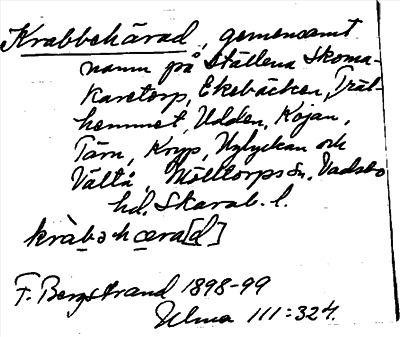 Krabbehärad, gemensamt
namn på ställena Skoma-
karetorp, Ekebäcken, Träl-
hemmet, Udden, Kojan,
Tärn, Kryp, Nylyckan och
Vältå, Mölltorps sn. Vadsbo
hd. Skarab. l.
kràbəhæra[d]
F. Bergstrand 1898-99
Ulma 111:324.